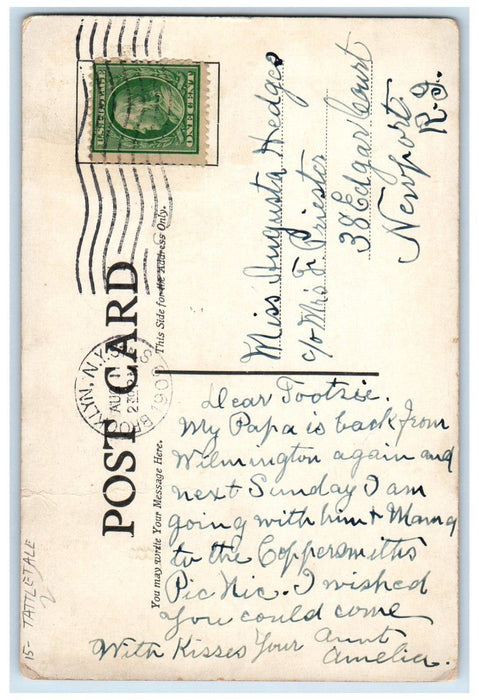 U.S. POSTAGE
ONE CENT
BROOKLYN, N.Y.
AUG
230
190
POST CARD
This Side for the Address Only.
You may write Your Message Here.
Miss Augusta Hedges
c/o Mrs F. Priester
38 Edgar Court
Newport
R.I.
Dear Tootsie.
My Papa is back from
Wilmington again and
next Sunday I am
going with him & Mama
to the Coppersmiths
Pic Nic. I wished
you could come
With Kisses Your Aunt
Amelia.
15- TATTLETALE